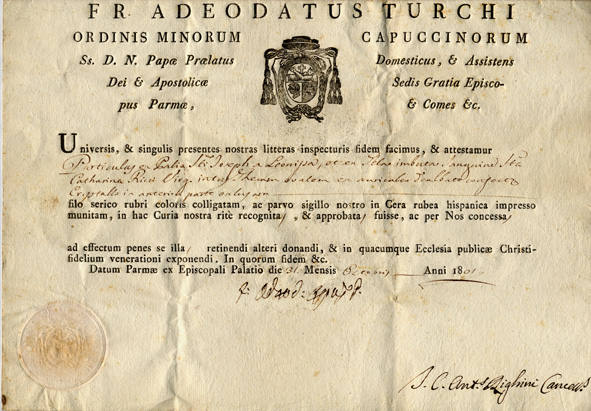 FR. ADEODATUS TURCHI
ORDINIS MINORUM CAPUCCINORUM
Ss. D. N. Papæ Prælatus Domesticus, & Assistens
Dei & Apostolicæ Sedis Gratia Episco-
pus Parmæ, & Comes &c.
Universis, & singulis presentes nostras litteras inspecturis fidem facimus, & attestamur
Particulas ex Pallio Sti Joseph a Leonissa, et ex
Catharina Ricci Virg. intus Thecam ovalem ex
Crystallo in anteriori parte
filo serico rubri coloris colligatam, ac parvo sigillo nostro in Cera rubea hispanica impresso
munitam, in hac Curia nostra ritè recognita, & approbata, fuisse, ac per Nos concessa,
ad effectum penes se illa, retinendi alteri donandi, & in quacumque Ecclesia publicæ Christi-
fidelium venerationi exponendi. In quorum fidem &c.
Datum Parmæ ex Episcopali Palatio die 31 Mensis Anni 1801